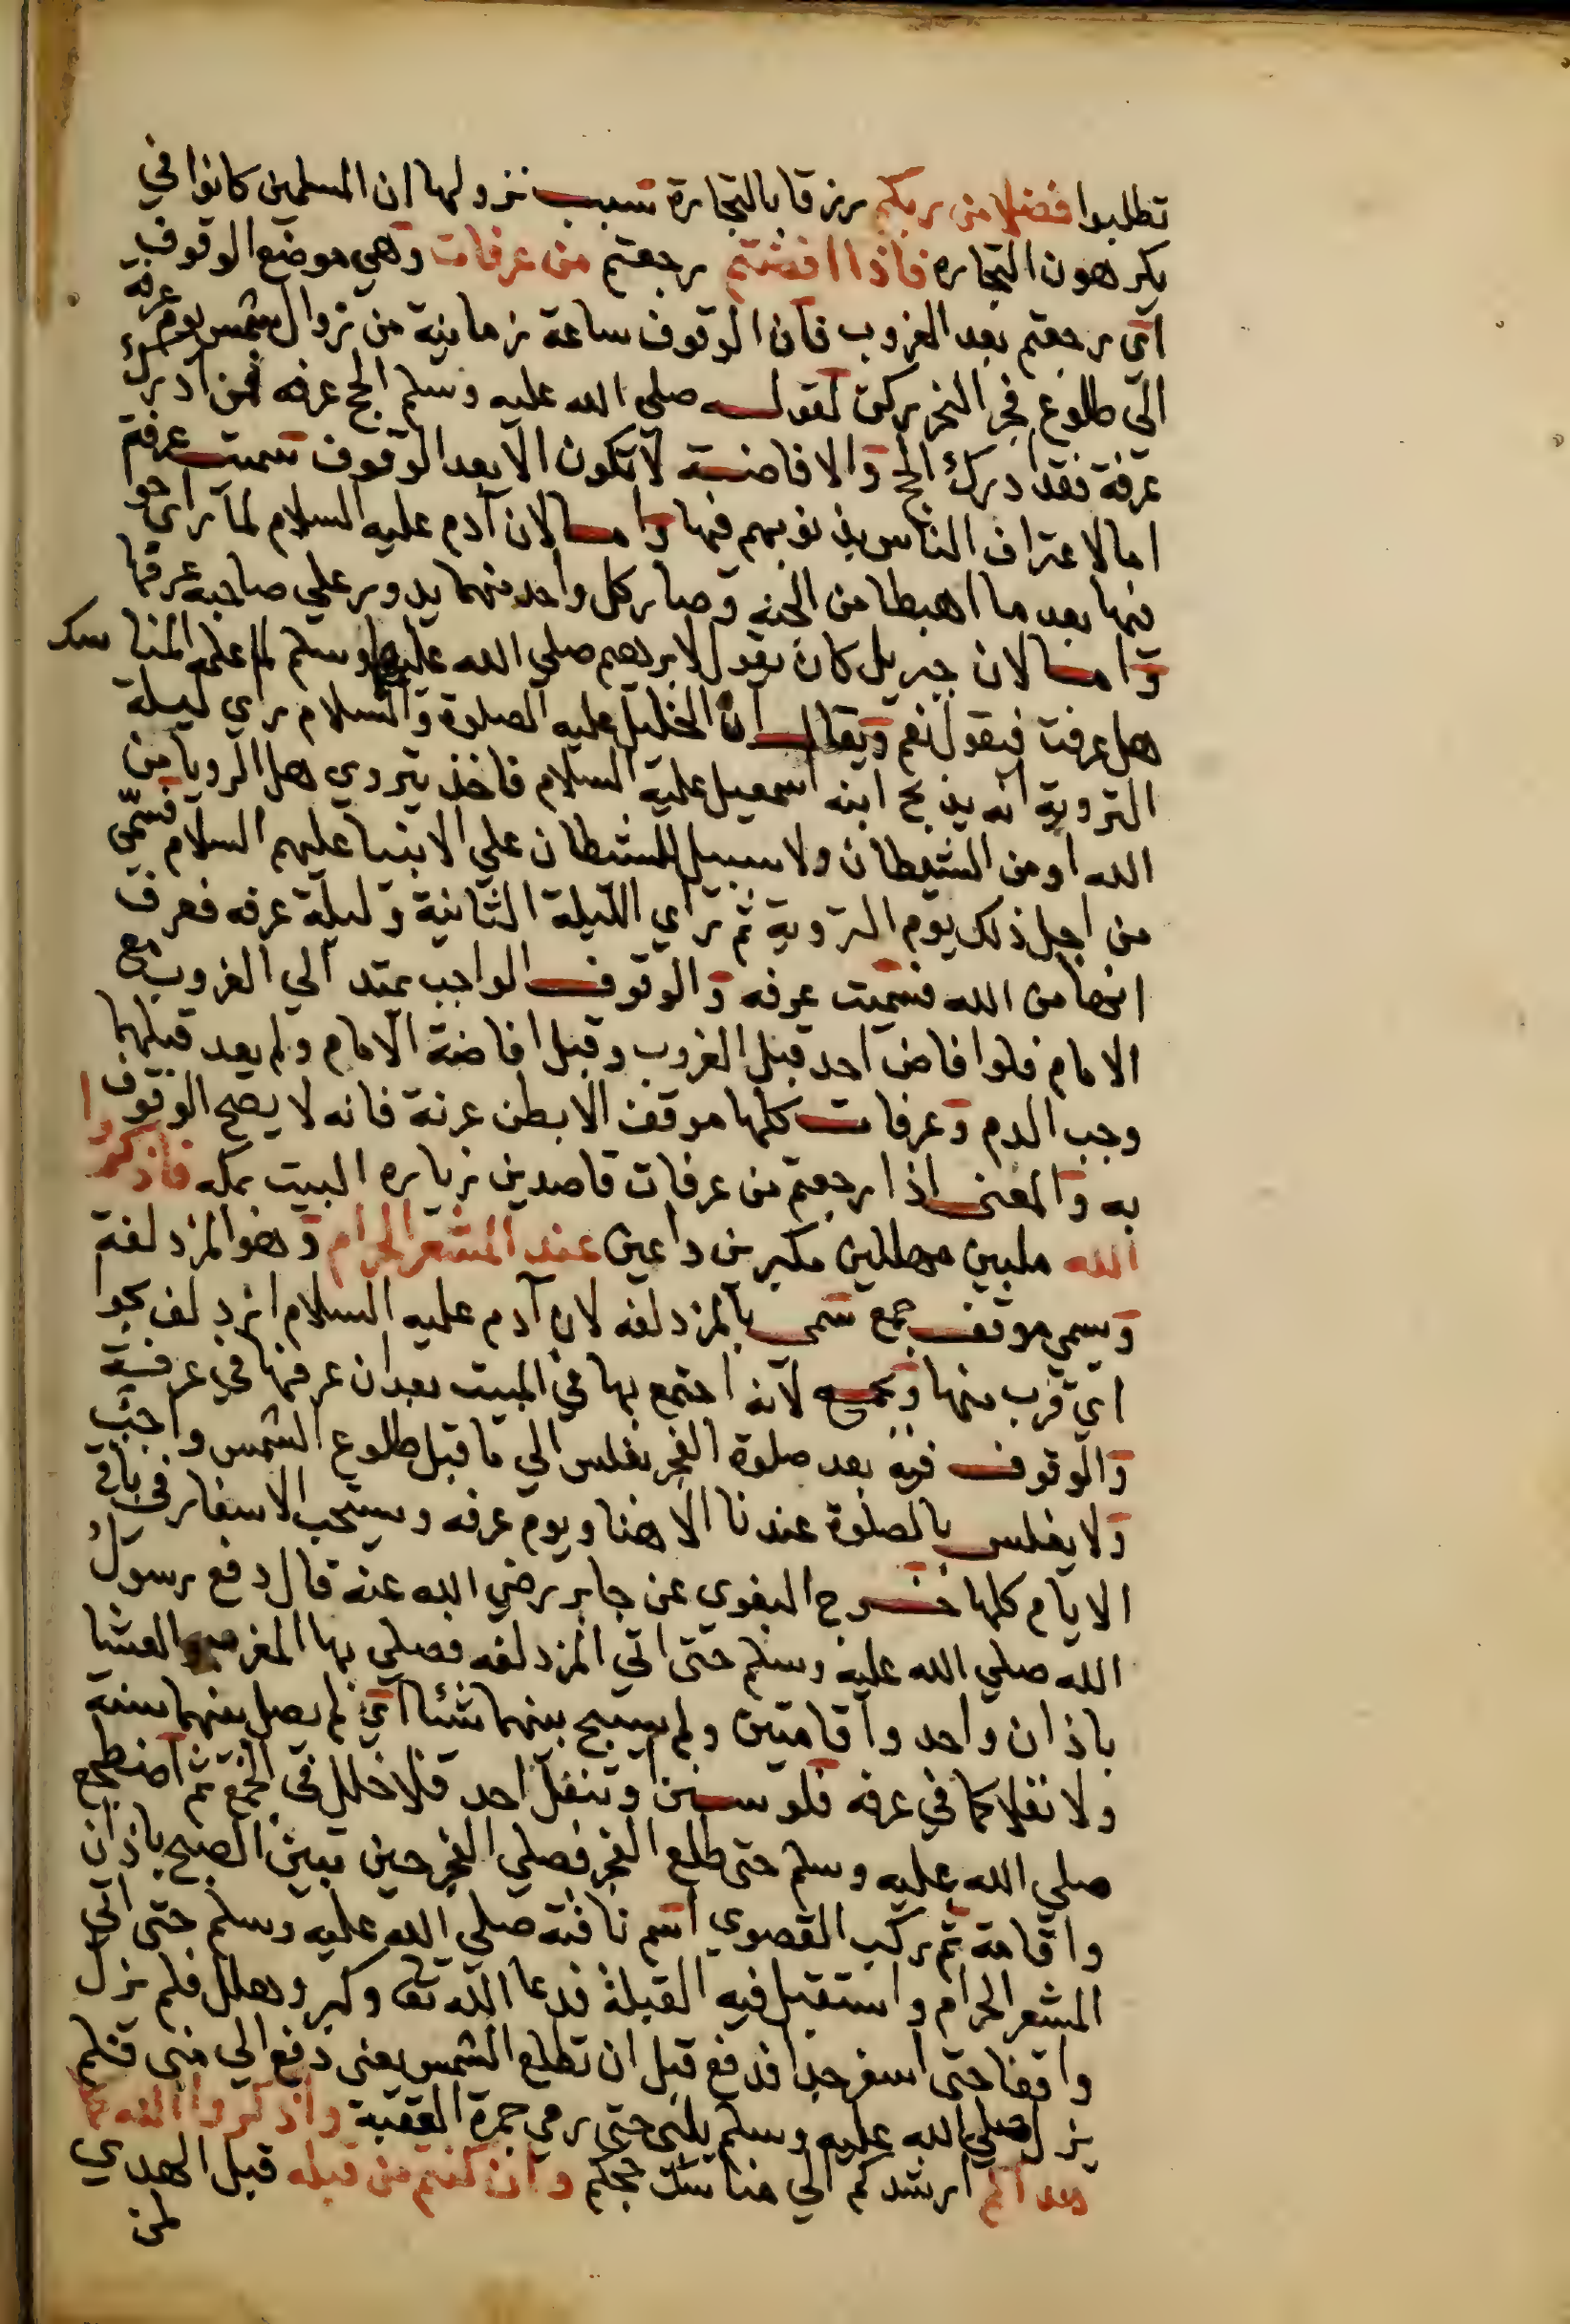 تطلبوا فضلا من ربكم رزقا بالتجارة سبب نزولها ان المسلمين كانوا في
يكرهون التجاره فاذا افضتم رجعتم من عرفات وهي موضع الوقوف
اي رجعتم بعد الغروب فان الوقوف ساعة زمانية من زوال الشمس يوم عرفة
الى طلوع فجر النحر ركن لقوله صلي الله عليه وسلم الحج عرفه فمن ادرك
عرفة فقد ادرك الحج والافاضة لا تكون الا بعد الوقوف سميت عرفة
اما لاعتراف الناس بذنوبهم فيها واما لان آدم عليه السلام لما رأى حوا
فيها بعد ما اهبطا من الجنه وصار كل واحد منهما يدور علي صاحبه عرفها
واما لان جبريل كان يقول لابرهيم صلي الله عليهما وسلم لما علمه المناسك
هل عرفت فيقول نعم ويقال ان الخليل عليه الصلوة والسلام راي ليلة
التروية انه يذبح ابنه اسمعيل عليه السلام فاخذ يتروي هل الرويا من
الله او من الشيطان ولا سبيل للشيطان علي الانبيا عليهم السلام فسمّي
من اجل ذلك يوم التروية ثم رأي الليلة الثانية وليلة عرفه فعرف
انها من الله فسميت عرفه والوقوف الواجب يمتد الي الغروب مع
الامام فلو افاض احد قبل الغروب وقبل افاضة الامام ولم يعد قبلهما
وجب الدم وعرفات كلها موقف الا بطن عرنة فانه لا يصح الوقوف
به والمعنى اذا رجعتم من عرفات قاصدين زياره البيت بمكه فاذكروا
الله ملبين مهللين مكبرين داعين عند المشعر الحرام وهو المزدلفة
ويسمي موقف جمع سمى بالمزدلفه لان آدم عليه السلام ازدلف بحوا
اي قرب منها وبجمع لانه اجتمع بها في المبيت بعد ان عرفها في عرفة
والوقوف فيه بعد صلوة الفجر بغلس الي ما قبل طلوع الشمس واجب
ولا يغلس بالصلوة عندنا الا هنا ويوم عرفه ويستحب الاسفار في باقي
الايام كلها خرج البغوى عن جابر رضي الله عنه قال دفع رسول
الله صلي الله عليه وسلم حتى اتي المزدلفه فصلي بها المغرب والعشا
باذان واحد واقامتين ولم يسبح بينهما شئا اي لم يصل بينهما سنة
ولا نفلا كما في عرفه فلو سنن او تنفل احد فلا خلل في الجمع ثم اضطجع
صلي الله عليه وسلم حتى طلع الفجر فصلي الفجر حين تبين الصبح باذان
واقامة ثم ركب القصوي اسم ناقته صلي الله عليه وسلم حتى اتي
المشعر الحرام واستقبل فيه القبلة فدعا الله تع وكبر وهلل فلم يزل
واقفا حتى اسفر جدا فدفع قبل ان تطلع الشمس يعني دفع الي منى فلم
يزل صلي الله عليه وسلم يلبى حتى رمي جمرة العقبة واذكروا الله كما
هداكم ارشدكم الي مناسك حجكم وان كنتم من قبله قبل الهدي
لمن